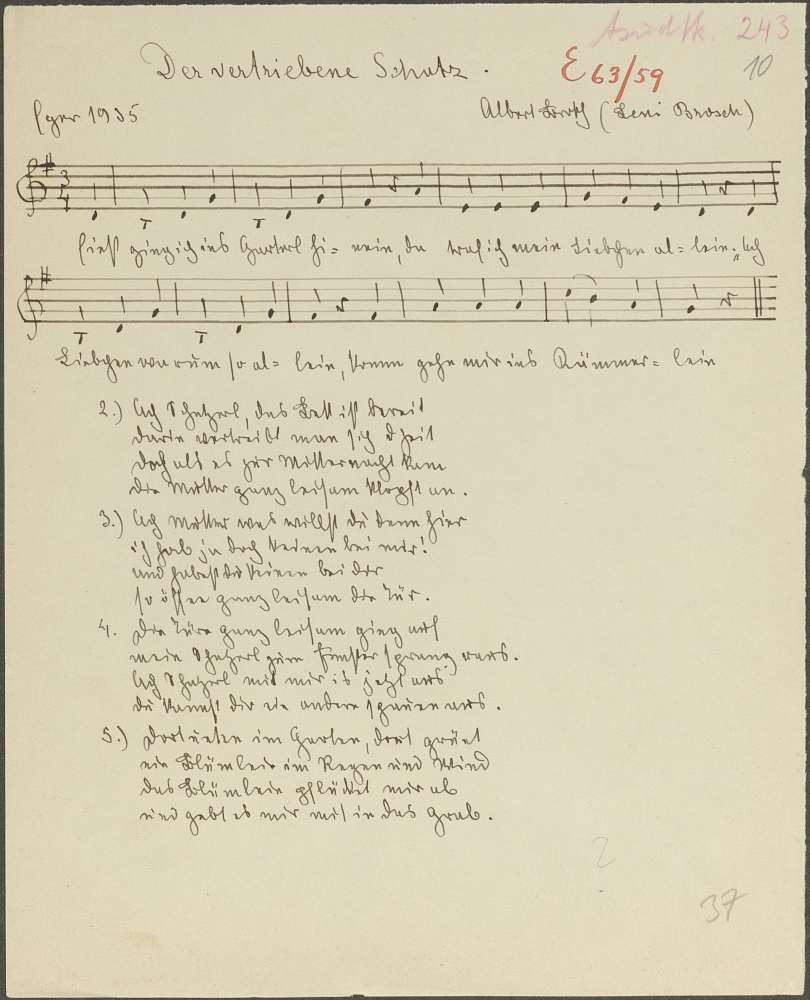 243
Der vertriebene Schatz.
E 63/59
10
Eger 1935
Albert Brosch (Leni Brosch)
3
4
Einst ging ich ins Garterl hi= nein, da traf ich mein Liebchen al= lein. "Ach
Liebchen warum so al= lein, komm gehe mir ins Kämmer= lein
2.) Ach Schatzerl, das Bett ist bereit
darin vertreibt man sich d Zeit
doch als es zur Mitternacht kam
die Mutter ganz leisam klopft an.
3.) Ach Mutter was willst du denn hier
ich hab ja doch keinen bei mir!
und habest du keinen bei dir
so öffne ganz leisam die Tür.
4. Die Türe ganz leisam ging auf
mein Schatzerl zum Fenster sprang raus.
Ach Schatzerl mit mir is jetzt aus
du kannst dir ein andere aus.
5.) Dort unten im Garten, dort grünt
ein Blümlein im Regen und Wind
das Blümlein pflücket mir ab
und gebt es mir mit in das Grab.
2
37